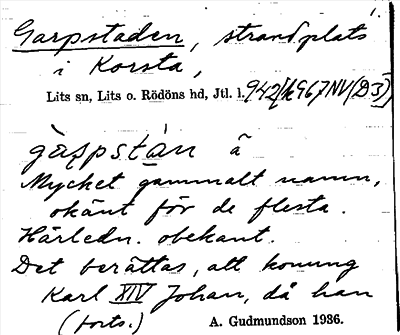 Garpstaden, strandplats
i Korsta,
Lits sn, Lits o. Rödöns hd, Jtl. l. 942/h967NV(D3)
gàrpstàn ã
Mycket gammalt namn,
okänt för de flesta.
Härledn. obekant.
Det berättas, att konung
Karl XIV Johan, då han
(forts.) A. Gudmundson 1936.